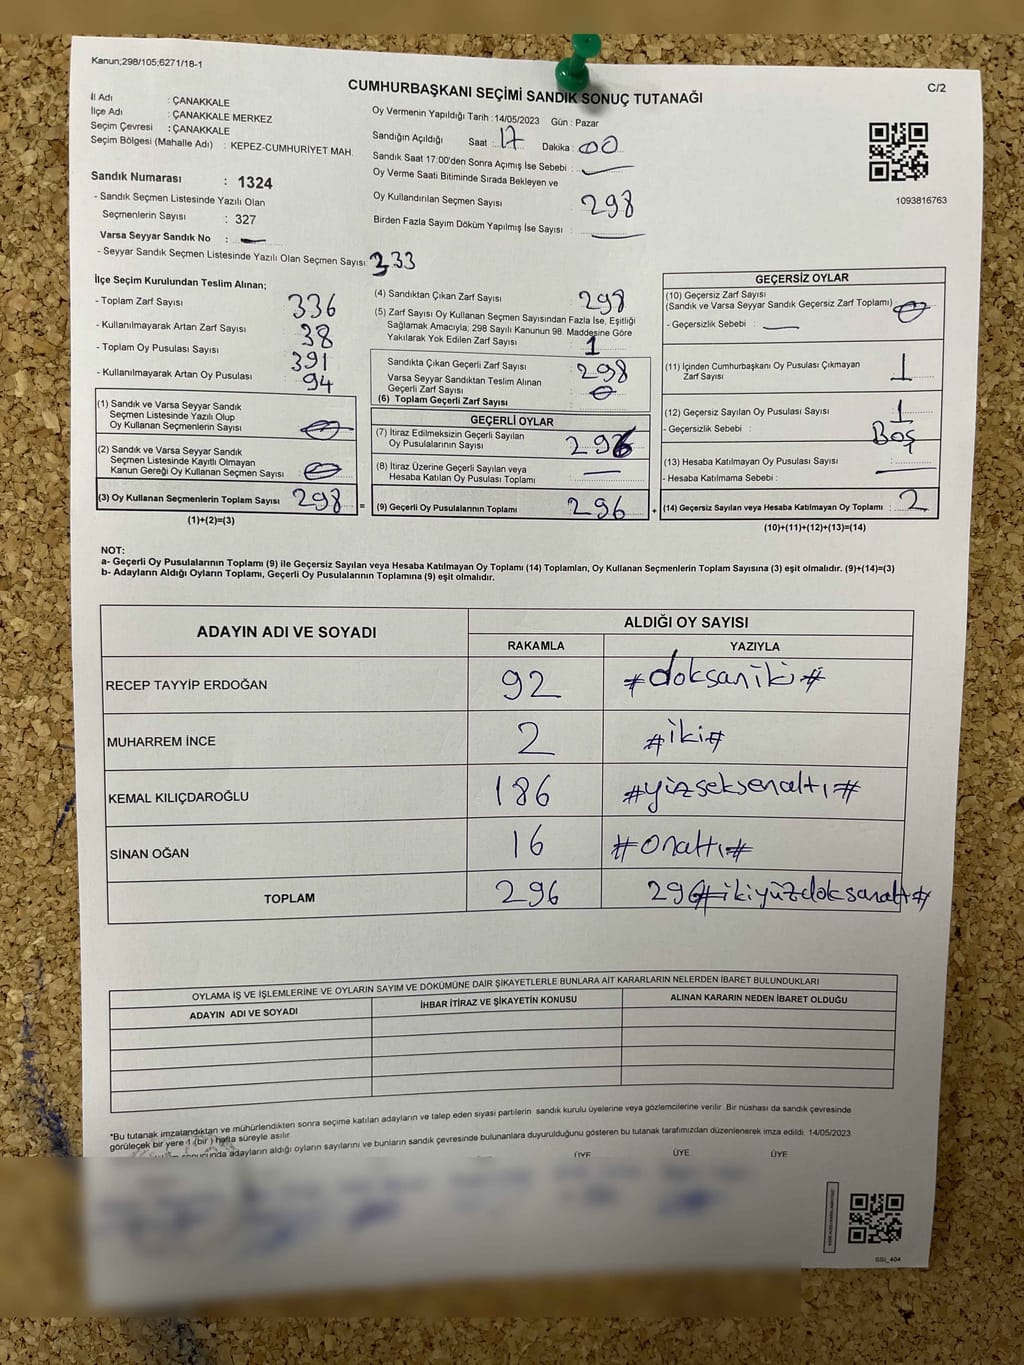 Kanun;298/105;6271/18-1
C/2
CUMHURBAŞKANI SEÇİMİ SANDIK SONUÇ TUTANAĞI
İl Adı : ÇANAKKALE
İlçe Adı : ÇANAKKALE MERKEZ
Seçim Çevresi : ÇANAKKALE
Seçim Bölgesi (Mahalle Adı) : KEPEZ-CUMHURİYET MAH.
Sandık Numarası : 1324
- Sandık Seçmen Listesinde Yazılı Olan
Seçmenlerin Sayısı : 327
Varsa Seyyar Sandık No : —
- Seyyar Sandık Seçmen Listesinde Yazılı Olan Seçmen Sayısı: 333
Oy Vermenin Yapıldığı Tarih : 14/05/2023 Gün : Pazar
Sandığın Açıldığı Saat : 17 Dakika : 00
Sandık Saat 17:00'den Sonra Açımış İse Sebebi : —
Oy Verme Saati Bitiminde Sırada Bekleyen ve
Oy Kullandırılan Seçmen Sayısı : 298
Birden Fazla Sayım Döküm Yapılmış İse Sayısı : —
1093816763
İlçe Seçim Kurulundan Teslim Alınan;
- Toplam Zarf Sayısı : 336
- Kullanılmayarak Artan Zarf Sayısı : 38
- Toplam Oy Pusulası Sayısı : 391
- Kullanılmayarak Artan Oy Pusulası : 94
(1) Sandık ve Varsa Seyyar Sandık
Seçmen Listesinde Yazılı Olup
Oy Kullanan Seçmenlerin Sayısı : 0
(2) Sandık ve Varsa Seyyar Sandık
Seçmen Listesinde Kayıtlı Olmayan
Kanun Gereği Oy Kullanan Seçmen Sayısı : 0
(3) Oy Kullanan Seçmenlerin Toplam Sayısı : 298 =
(1)+(2)=(3)
(4) Sandıktan Çıkan Zarf Sayısı : 298
(5) Zarf Sayısı Oy Kullanan Seçmen Sayısından Fazla İse, Eşitliği
Sağlamak Amacıyla; 298 Sayılı Kanunun 98. Maddesine Göre
Yakılarak Yok Edilen Zarf Sayısı : 1
Sandıkta Çıkan Geçerli Zarf Sayısı : 298
Varsa Seyyar Sandıktan Teslim Alınan
Geçerli Zarf Sayısı : 0
(6) Toplam Geçerli Zarf Sayısı :
GEÇERLİ OYLAR
(7) İtiraz Edilmeksizin Geçerli Sayılan
Oy Pusulalarının Sayısı : 296
(8) İtiraz Üzerine Geçerli Sayılan veya
Hesaba Katılan Oy Pusulası Toplamı : —
(9) Geçerli Oy Pusulalarının Toplamı : 296 +
GEÇERSİZ OYLAR
(10) Geçersiz Zarf Sayısı
(Sandık ve Varsa Seyyar Sandık Geçersiz Zarf Toplamı) : 0
- Geçersizlik Sebebi : —
(11) İçinden Cumhurbaşkanı Oy Pusulası Çıkmayan
Zarf Sayısı : 1
(12) Geçersiz Sayılan Oy Pusulası Sayısı : 1
- Geçersizlik Sebebi : Boş
(13) Hesaba Katılmayan Oy Pusulası Sayısı : —
- Hesaba Katılmama Sebebi :
(14) Geçersiz Sayılan veya Hesaba Katılmayan Oy Toplamı : 2
(10)+(11)+(12)+(13)=(14)
NOT:
a- Geçerli Oy Pusulalarının Toplamı (9) ile Geçersiz Sayılan veya Hesaba Katılmayan Oy Toplamı (14) Toplamları, Oy Kullanan Seçmenlerin Toplam Sayısına (3) eşit olmalıdır. (9)+(14)=(3)
b- Adayların Aldığı Oyların Toplamı, Geçerli Oy Pusulalarının Toplamına (9) eşit olmalıdır.
ADAYIN ADI VE SOYADI
ALDIĞI OY SAYISI
RAKAMLA YAZIYLA
RECEP TAYYİP ERDOĞAN 92 #doksaniki#
MUHARREM İNCE 2 #iki#
KEMAL KILIÇDAROĞLU 186 #yüzseksenaltı#
SİNAN OĞAN 16 #Onaltı#
TOPLAM 296 296#ikiyüzdoksanaltı#
OYLAMA İŞ VE İŞLEMLERİNE VE OYLARIN SAYIM VE DÖKÜMÜNE DAİR ŞİKAYETLERLE BUNLARA AİT KARARLARIN NELERDEN İBARET BULUNDUKLARI
ADAYIN ADI VE SOYADI İHBAR İTİRAZ VE ŞİKAYETİN KONUSU ALINAN KARARIN NEDEN İBARET OLDUĞU
*Bu tutanak imzalandıktan ve mühürlendikten sonra seçime katılan adayların ve talep eden siyasi partilerin sandık kurulu üyelerine veya gözlemcilerine verilir. Bir nüshası da sandık çevresinde
görülecek bir yere 1 (bir) hafta süreyle asılır.
adayların aldığı oyların sayılarını ve bunların sandık çevresinde bulunanlara duyurulduğunu gösteren bu tutanak tarafımızdan düzenlenerek imza edildi. 14/05/2023
ÜYE ÜYE ÜYE
GSI_404